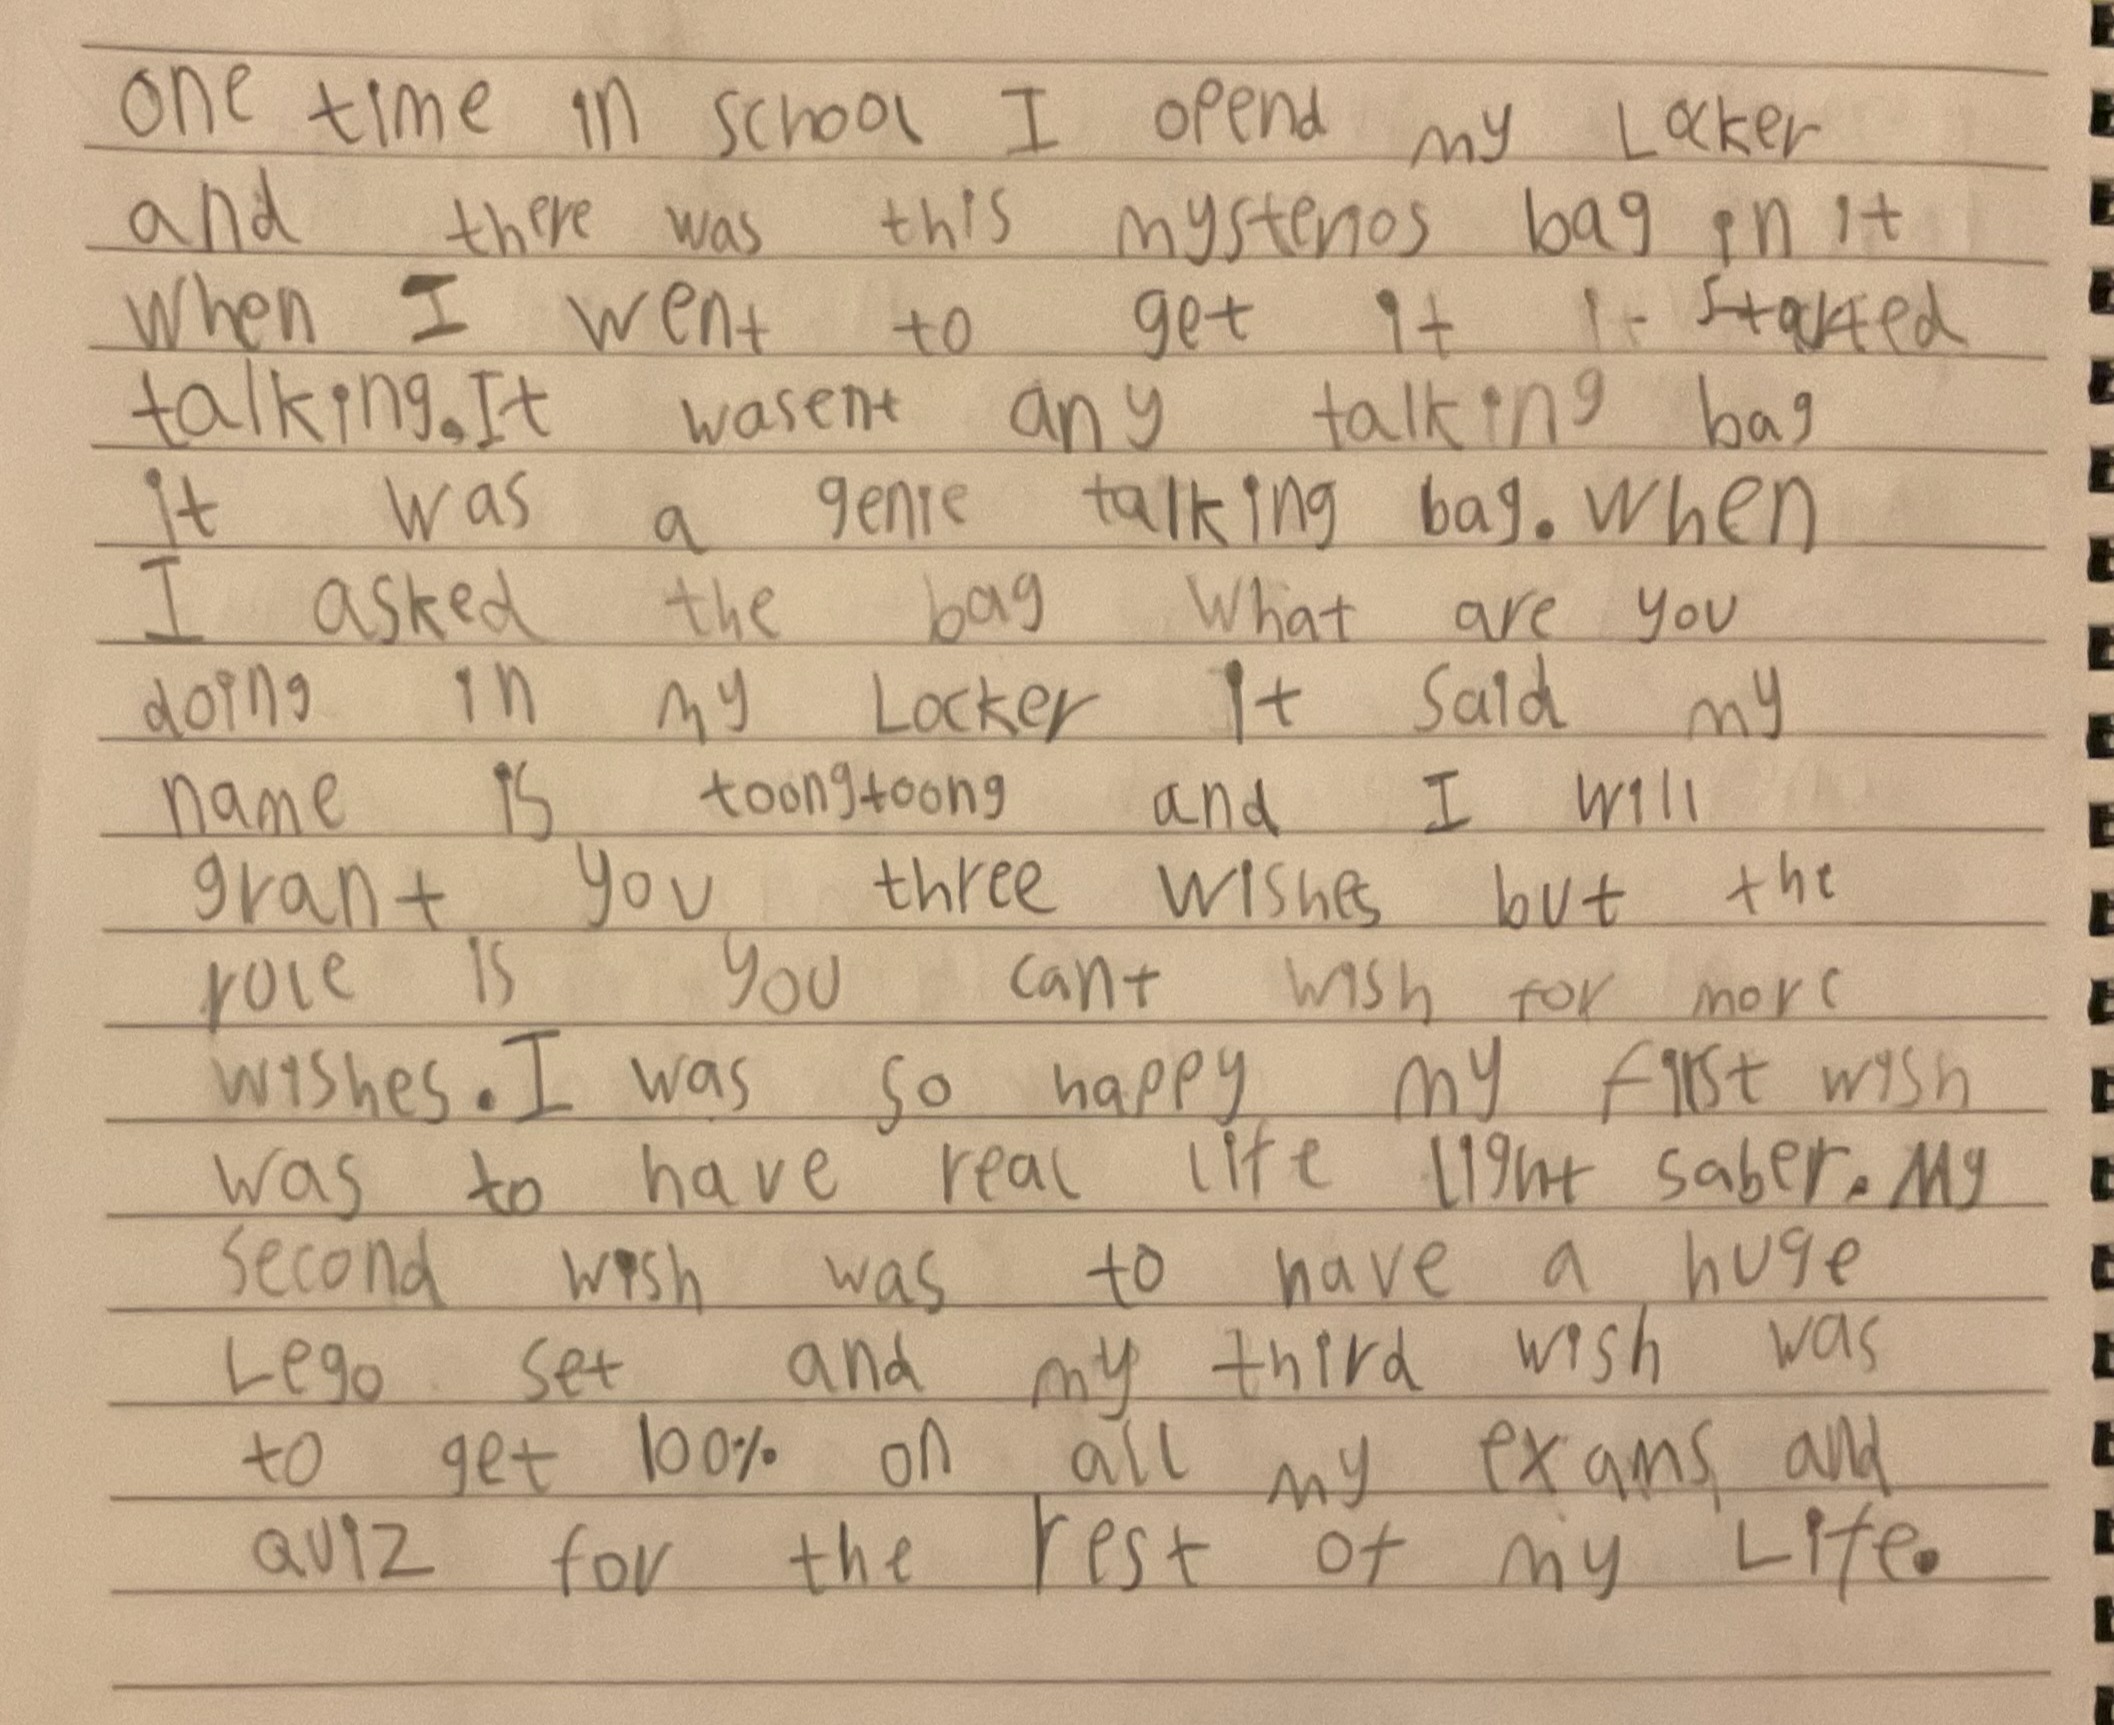 one time in school I opend my Locker
and there was this mysterios bag in it
when I went to get it it started
talking.It wasent any talking bag
it was a genie talking bag. when
I asked the bag what are you
doing in my Locker it said my
name is toongtoong and I will
grant you three wishes but the
role is you cant wish for more
wishes. I was so happy my first wish
was to have real life light saber. My
second wish was to have a huge
Lego set and my third wish was
to get 100% on all my exams and
quiz for the rest of my Life.